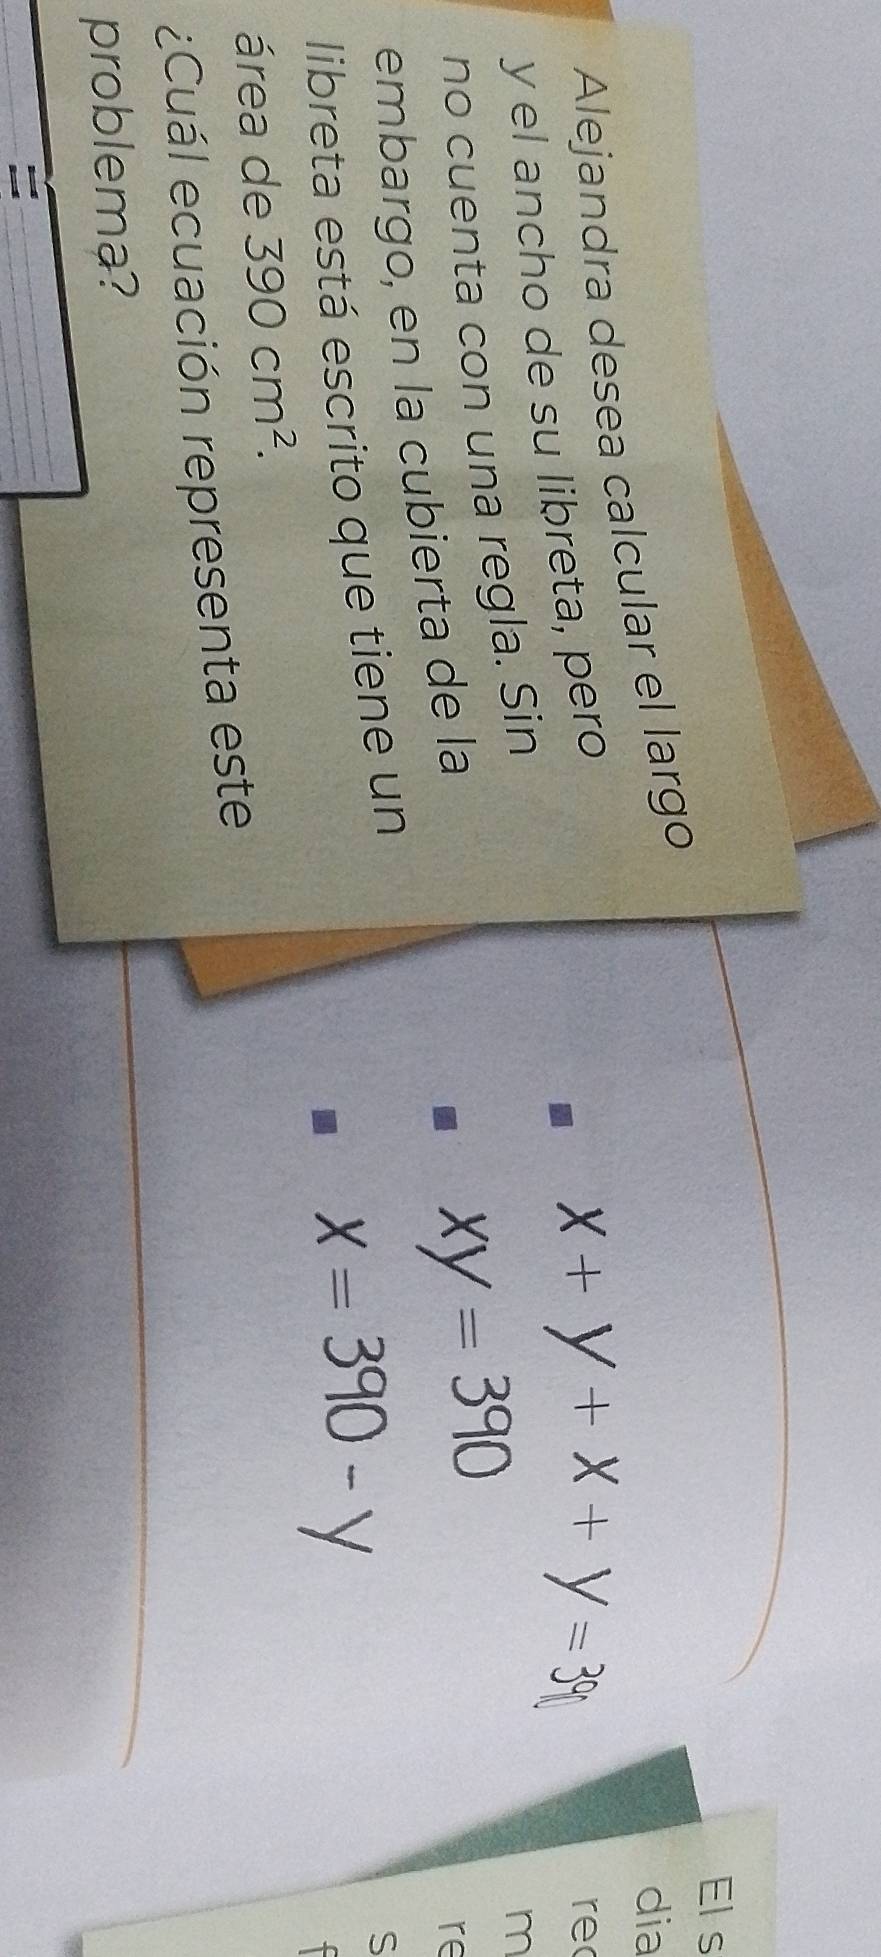 Alejandra desea calcular el largo
y el ancho de su libreta, pero
no cuenta con una regla. Sin
embargo, en la cubierta de la
libreta está escrito que tiene un
área de 390 cm².
¿Cuál ecuación representa este
problema?
▪ x + y + x + y = 390
▪ xy = 390
▪ x = 390 - y
El s
dia
rec
m
re
s
f